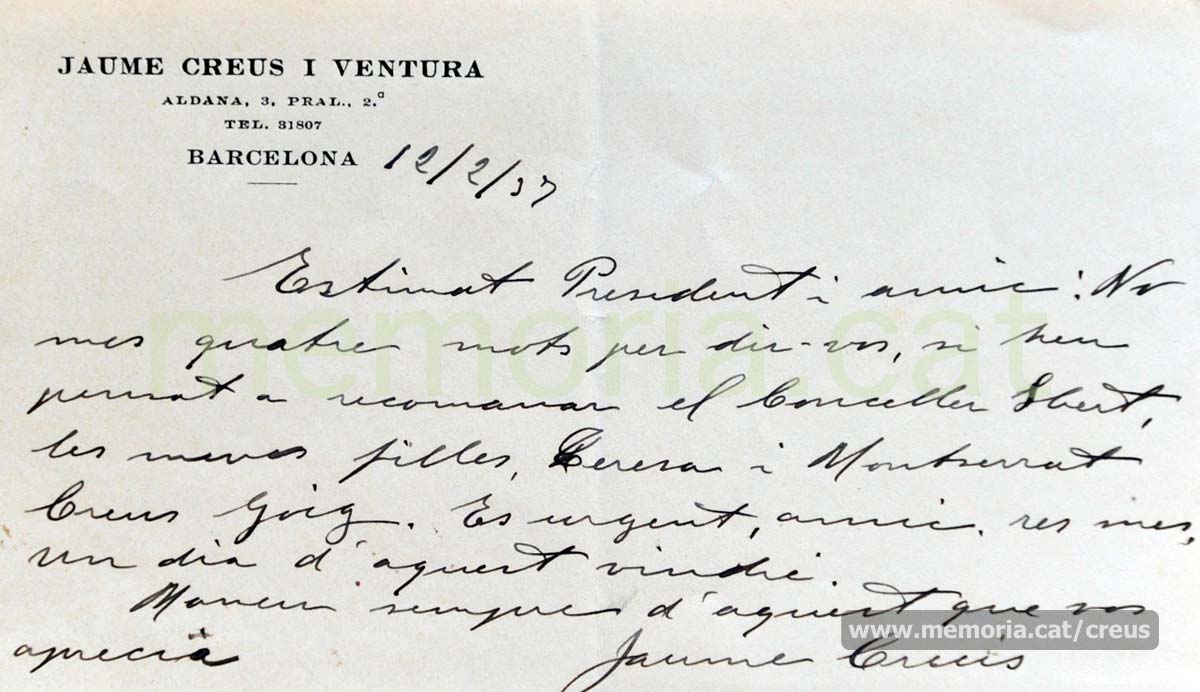 JAUME CREUS I VENTURA
ALDANA, 3, PRAL., 2.ª
TEL. 31807
BARCELONA 12/2/37
Estimat President i amic: No
mes quatre mots per dir-vos, si heu
pensat a recomanar el Conceller Sbert,
les meves filles, Teresa i Montserrat
Creus Goig. Es urgent, amic. res mes,
un dia d'aquest vindré.
Maneu sempre d'aquest que vos
aprecià Jaume Creus
memoria.cat
www.memoria.cat/creus